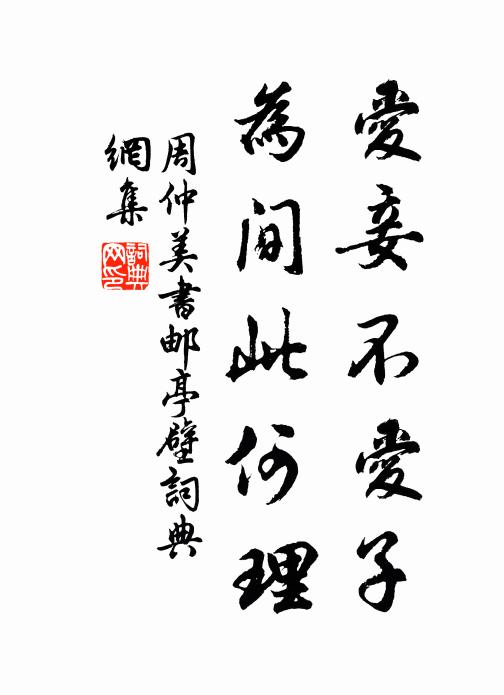 愛妾不愛子
為間此何理
周仲美書邮亭壁詞典
網集
詞典
网印